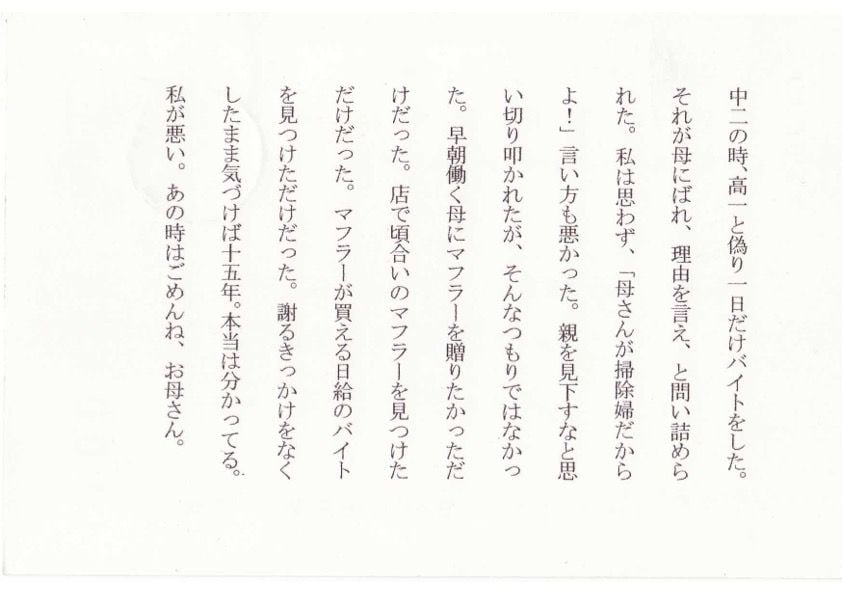 中二の時、高一と偽り一日だけバイトをした。
それが母にばれ、理由を言え、と問い詰めら
れた。私は思わず、「母さんが掃除婦だから
よ！」言い方も悪かった。親を見下すなと思
い切り叩かれたが、そんなつもりではなかっ
た。早朝働く母にマフラーを贈りたかっただ
けだった。店で頃合いのマフラーを見つけた
だけだった。マフラーが買える日給のバイト
を見つけただけだった。謝るきっかけをなく
したまま気づけば十五年。本当は分かってる。
私が悪い。あの時はごめんね、お母さん。